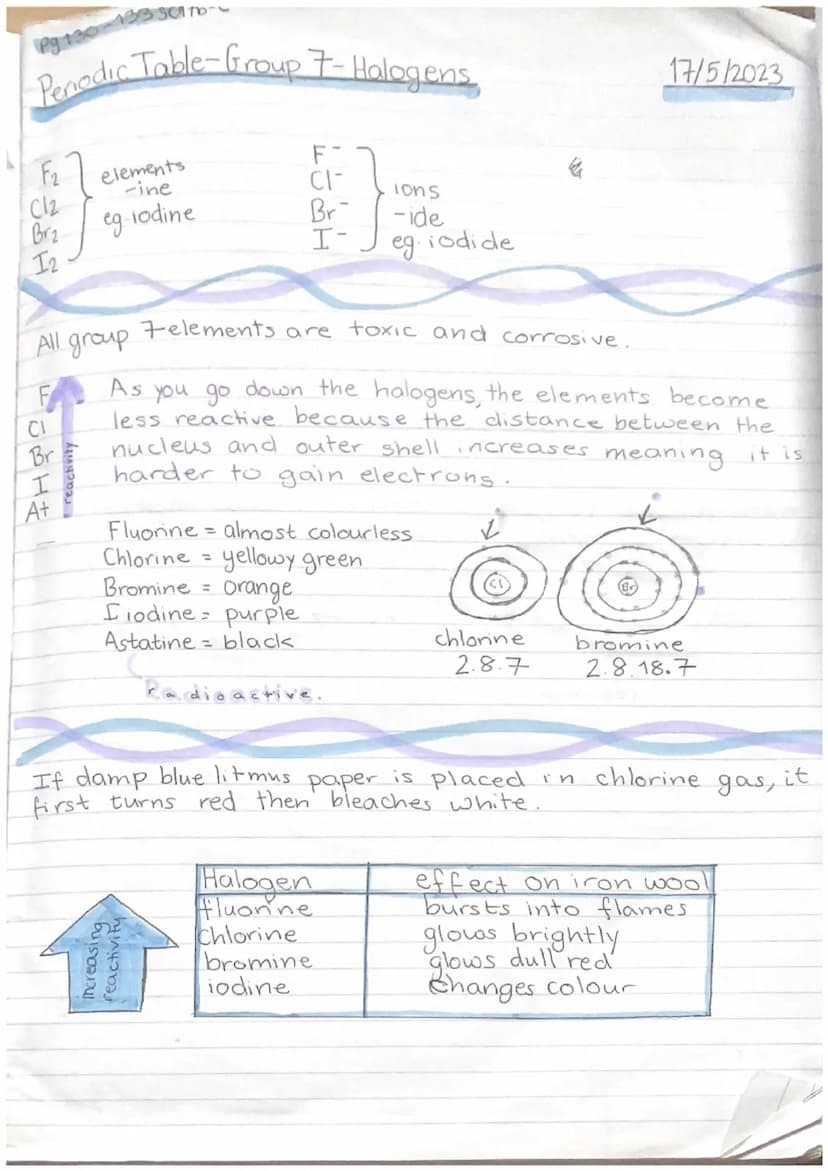 Pg 130-133
Periodic Table-Group 7-Halogens
17/5/2023
F2
Cl2
Br2
I2
elements
-ine
eg. iodine
F-
Cl-
Br-
I-
ions
-ide
eg. iodide
All group 7 elements are toxic and corrosive.
F
Cl
Br
I
At
reactivity
As you go down the halogens, the elements become
less reactive because the distance between the
nucleus and outer shell increases meaning it is
harder to gain electrons.
Fluorine = almost colourless
Chlorine = yellowy green
Bromine = orange
I iodine = purple
Astatine = black
Radioactive.
Cl
chlorine
2.8.7
Br
bromine
2.8.18.7
If damp blue litmus paper is placed in chlorine gas, it
first turns red then bleaches white.
Increasing
reactivity
Halogen effect on iron wool
fluorine bursts into flames
chlorine glows brightly
bromine glows dull red
iodine changes colour